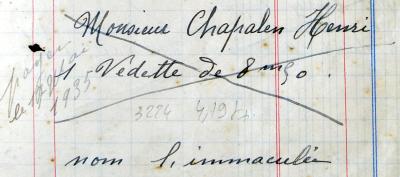 Monsieur Chapalen Henri
1 Vedette de 8m50.
payer
le 17 Mai
1935
3224 4,19 tx
nom l'immaculée